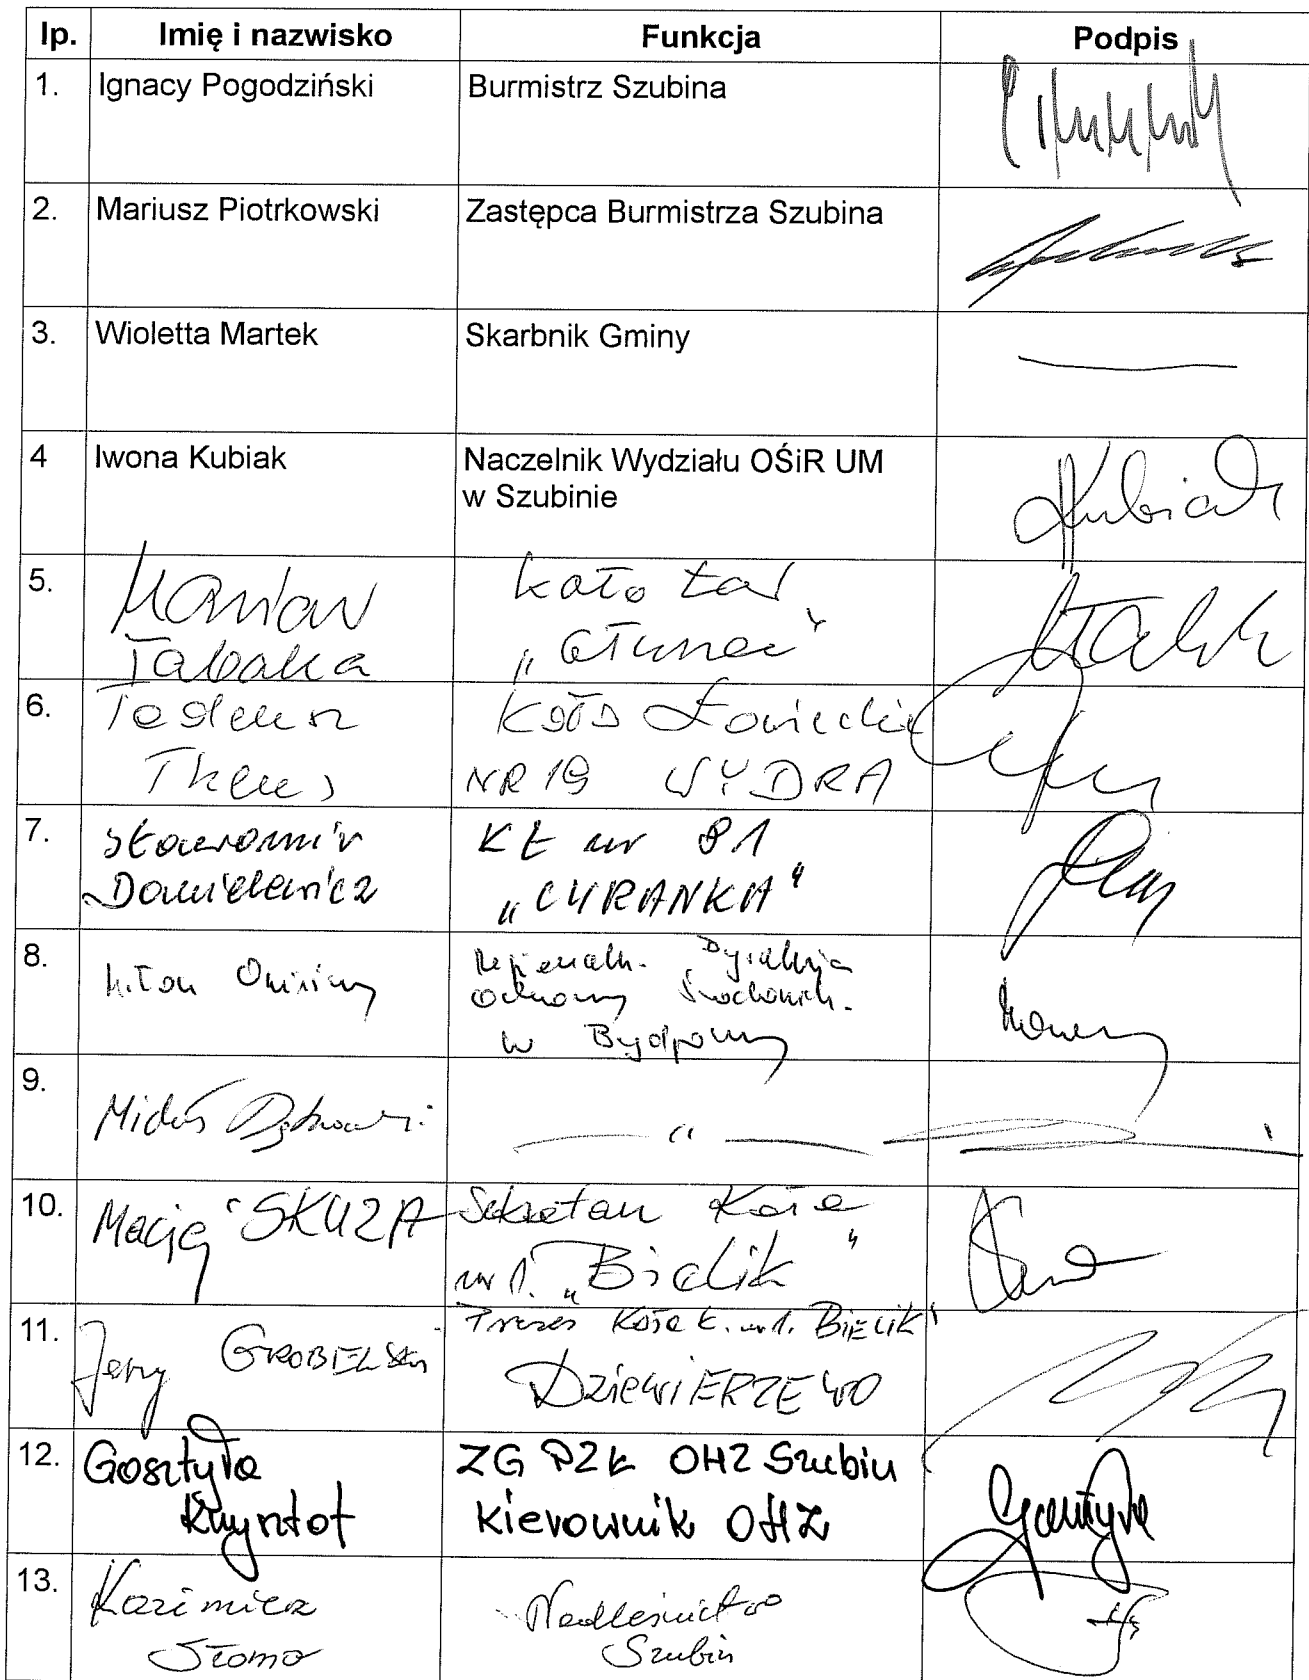 lp. Imię i nazwisko Funkcja Podpis
1. Ignacy Pogodziński Burmistrz Szubina
2. Mariusz Piotrkowski Zastępca Burmistrza Szubina
3. Wioletta Martek Skarbnik Gminy
4 Iwona Kubiak Naczelnik Wydziału OŚiR UM
w Szubinie
Kubiak
5. Marian Koło Łow
Tabaka
6. Tadeusz Koło Łowieckie
NR 19 WYDRA
7. Sławomir KŁ nr 81
Danielewicz "CYRANKA"
8. Regionaln. Dyrekcja
Ochrony Środowisk.
w Bydgoszczy
9. Michał — " —
10. Maciej SKUZA Sekretarz Koła
nr 1. "Bielik"
11. Jerzy GROBELSKI Prezes Koła Ł. nr 1. BIELIK"
DZIEWIERZEWO
12. Gosztyła ZG PZŁ OHZ Szubin
Krzysztof Kierownik OHZ
Gosztyła
13. Kazimierz Nadleśnictwo
Słoma Szubin